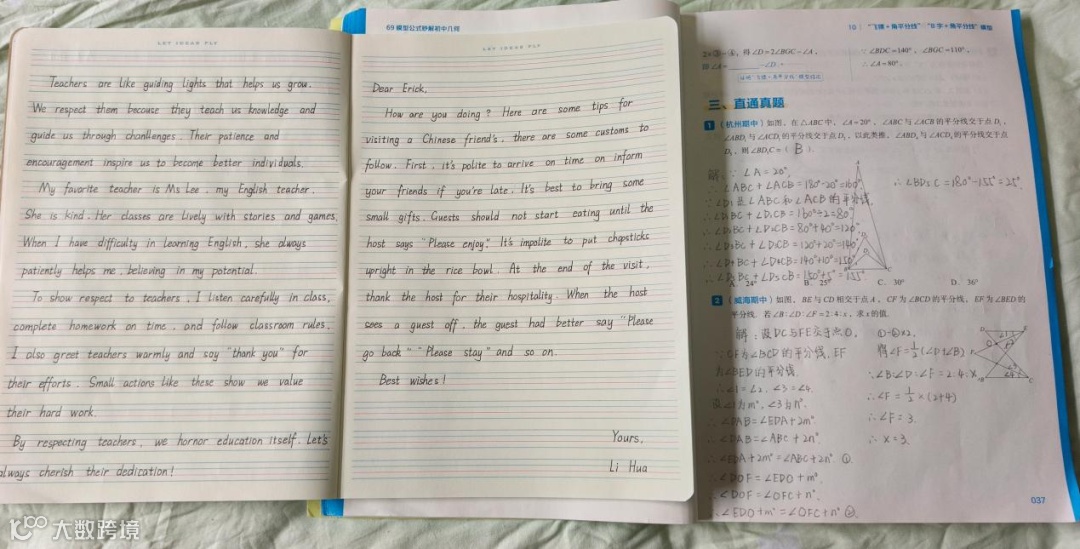 Teachers are like guiding lights that helps us grow.
We respect them becouse they teach us knowledge and
guide us through chanllenges. Their patience and
encouragement inspire us to become better individuals.
My favorite teacher is Ms Lee, my English teacher.
She is kind. Her classes are lively with stories and games.
When I have difficulty in learning English, she always
patiently helps me, believing in my potential.
To show respect to teachers, I listen carefully in class,
complete homework on time, and follow classroom rules.
I also greet teachers warmly and say "thank you" for
their efforts. Small actions like these show we value
their hard work.
By respecting teachers, we hornor education itself. Let's
always cherish their dedication!
69模型公式秒解初中几何
Dear Erick,
How are you doing? Here are some tips for
visiting a Chinese friend's, there are some customs to
follow. First, it's polite to arrive on time on inform
your friends if you're late. It's best to bring some
small gifts. Guests should not start eating until the
host says "Please enjoy." It's impolite to put chopsticks
upright in the rice bowl. At the end of the visit,
thank the host for their hospitality. When the host
sees a guest off, the guest had better say "Please
go back" "Please stay" and so on.
Best wishes!
Yours,
Li Hua
10 "飞镖+角平分线" "8字+角平分线"模型
得∠D=2∠BGC-∠A,
∵∠BDC=140°,∠BGC=110°,
∴∠A=80°.
三、直通真题
1 (杭州期中)如图,在△ABC中,∠A=20°,∠ABC与∠ACB的平分线交于点D₁,
∠ABD₁与∠ACD₁的平分线交于点D₂,以此类推,∠ABD₄与∠ACD₄的平分线交于点
D₅,则∠BD₅C=( B )
解:∵∠A=20°,
∴∠ABC+∠ACB=180°-20°=160°
∵∠D₁是∠ABC和∠ACB的平分线
∴∠D₁BC+∠D₁CB=160°÷2=80°
∴∠D₂BC+∠D₂CB=80°+40°=120°
∴∠D₃BC+∠D₃CB=120°+20°=140°
∴∠D₄BC+∠D₄CB=140°+10°=150°
∴∠D₅BC+∠D₅CB=150°+5°=155°
∴∠BD₅C=180°-155°=25°
A. 24° B. 25° C. 30° D. 36°
2 (威海期中)如图,BE与CD相交于点A,CF为∠BCD的平分线,EF为∠BED的
平分线.若∠B:∠D:∠F=2:4:x,求x的值.
解:设DC与FE交于点O,
∵CF为∠BCD的平分线,EF
为∠BED的平分线,
∴∠1=∠2,∠3=∠4.
设∠1为m°,∠3为n°.
∴∠DAB=∠EDA+2m°
∴∠DAB=∠ABC+2n°
∴∠EDA+2m°=∠ABC+2n° ①
∴∠DOF=∠EDO+m°
∴∠DOF=∠OFC+n°
∴∠EDO+m°=∠OFC+n° ②
①-②×2,
得∠F=½(∠D+∠B)
∵∠B:∠D:∠F=2:4:x
∴∠F=½×(2+4)
∴∠F=3.
∴x=3.
037
大数跨境